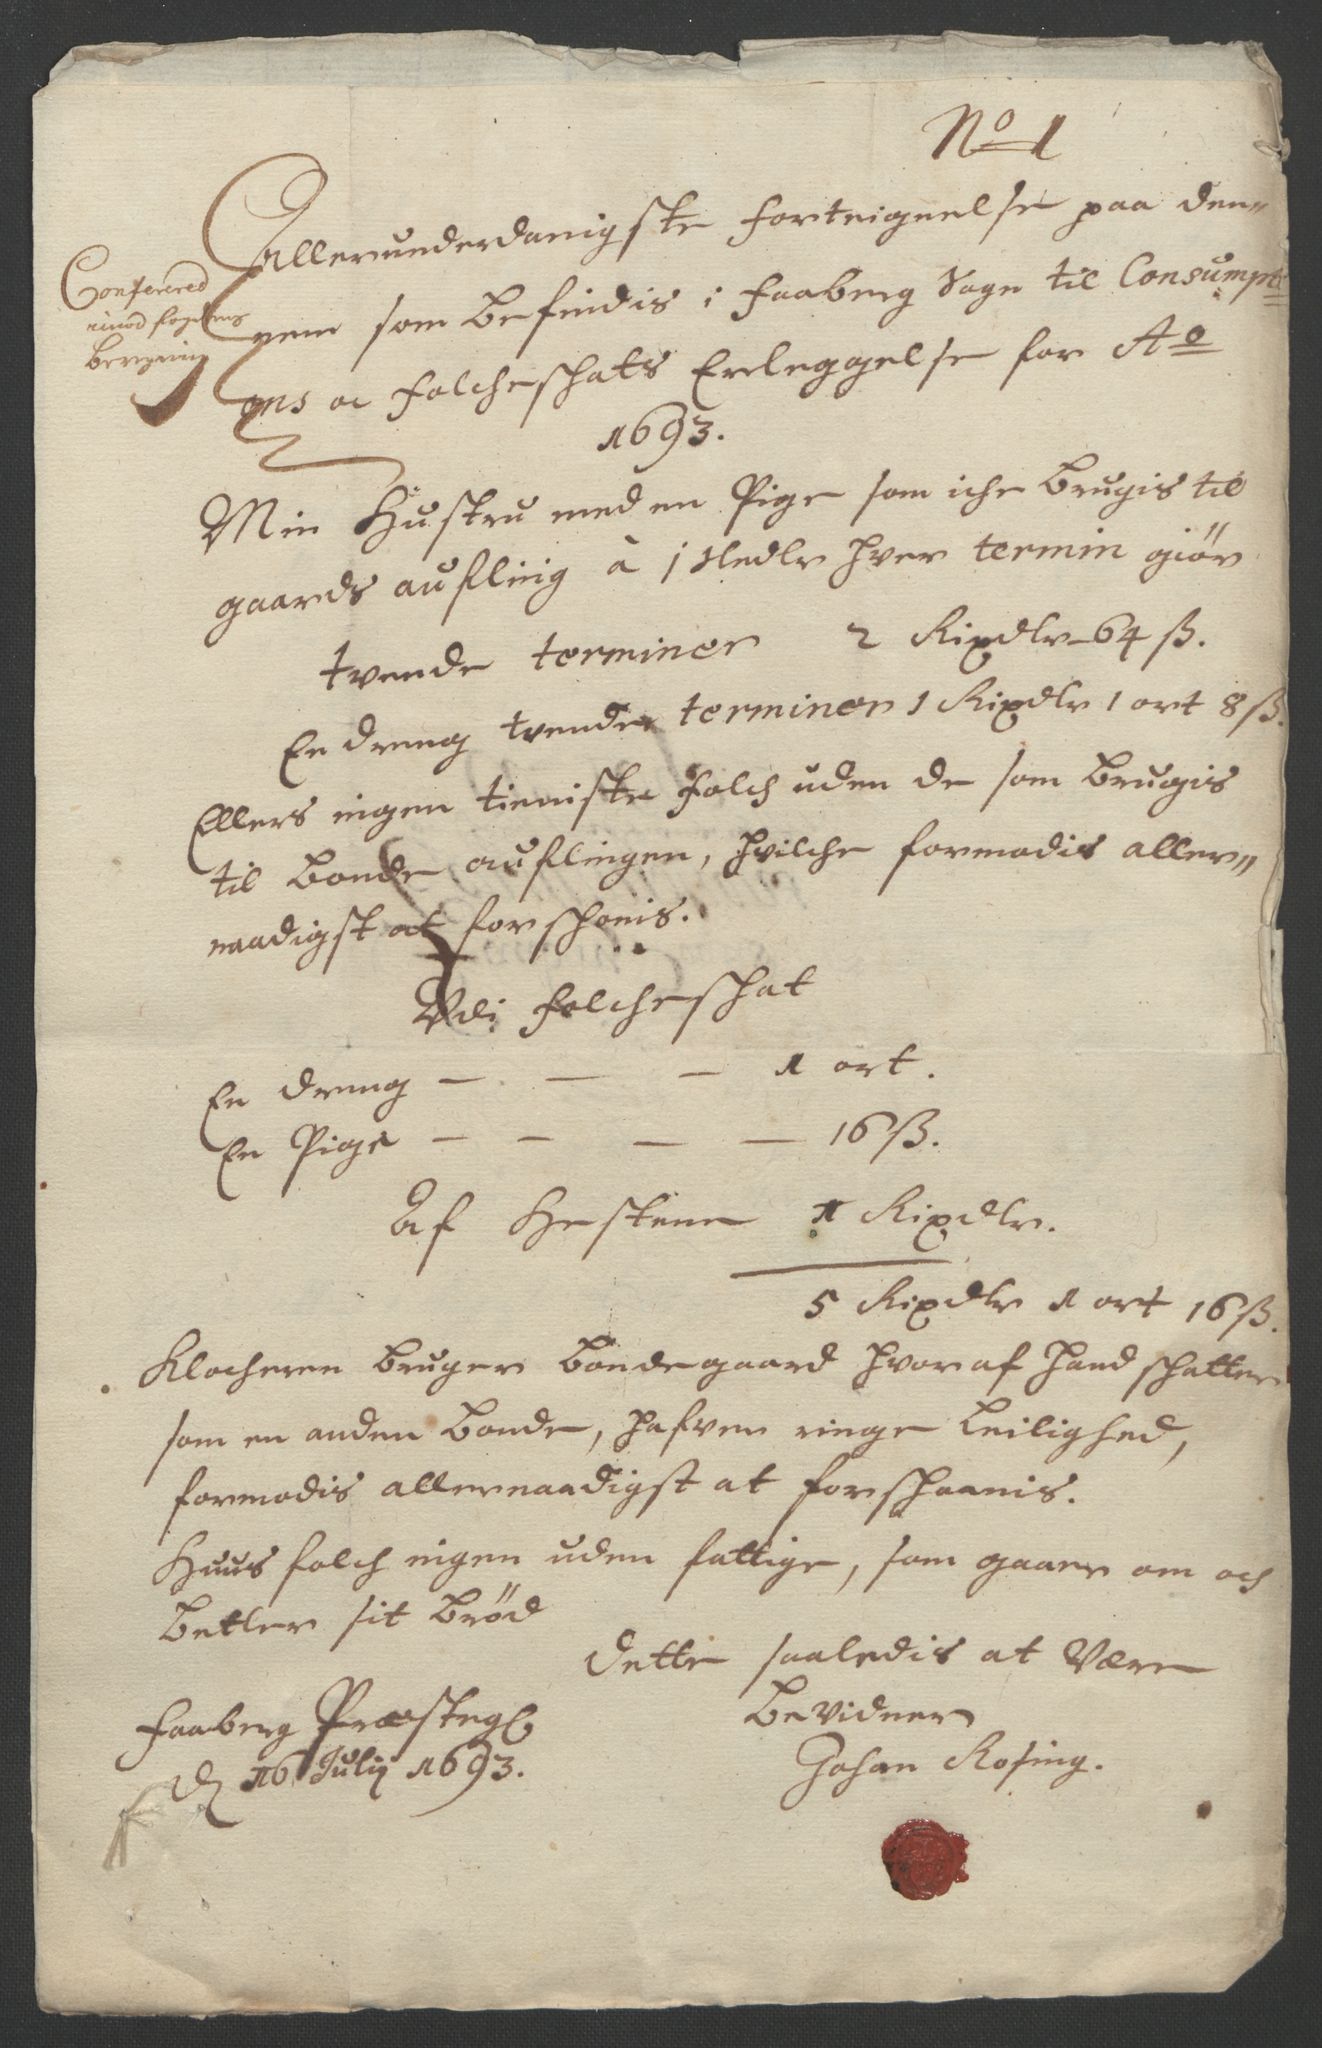 No 1
Allerunderdanigste forteignelse paa den„
Conferered
imod fogdens
Beregning
nem som befindis i faaberg Sogn til Consumpti
ons oc folcheschats Erleggelse for Ao
1693.
Min Hustru med en Pige som iche brugis til
gaards aufling à 1 Sledlr hver termin giør
tvende terminer 2 Rixdlr 64 ß.
En dreng tvende terminer 1 Rixdlr 1 ort 8 ß.
Ellers ingen tieniste folch uden de som brugis
til bonde auflingen, hvilche formodis aller„
naadigst at forschonis.
Vdi folcheschat
En dreng — — — 1 ort.
En Pige — — — — 16 ß.
Af Hestene 1 Rixdlr.
5 Rixdlr 1 ort 16 ß.
Klocheren bruger bondegaard hvoraf hand schatter
som en anden bonde, hafver ringe leilighed,
formodis allernaadigst at forschaanis.
Huus folch ingen uden fattige, som gaar om och
betler sit brød
Dette saaledis at være
bevidner
faaberg Præstegl
Johan Rosing.
d 16 Julij 1693.